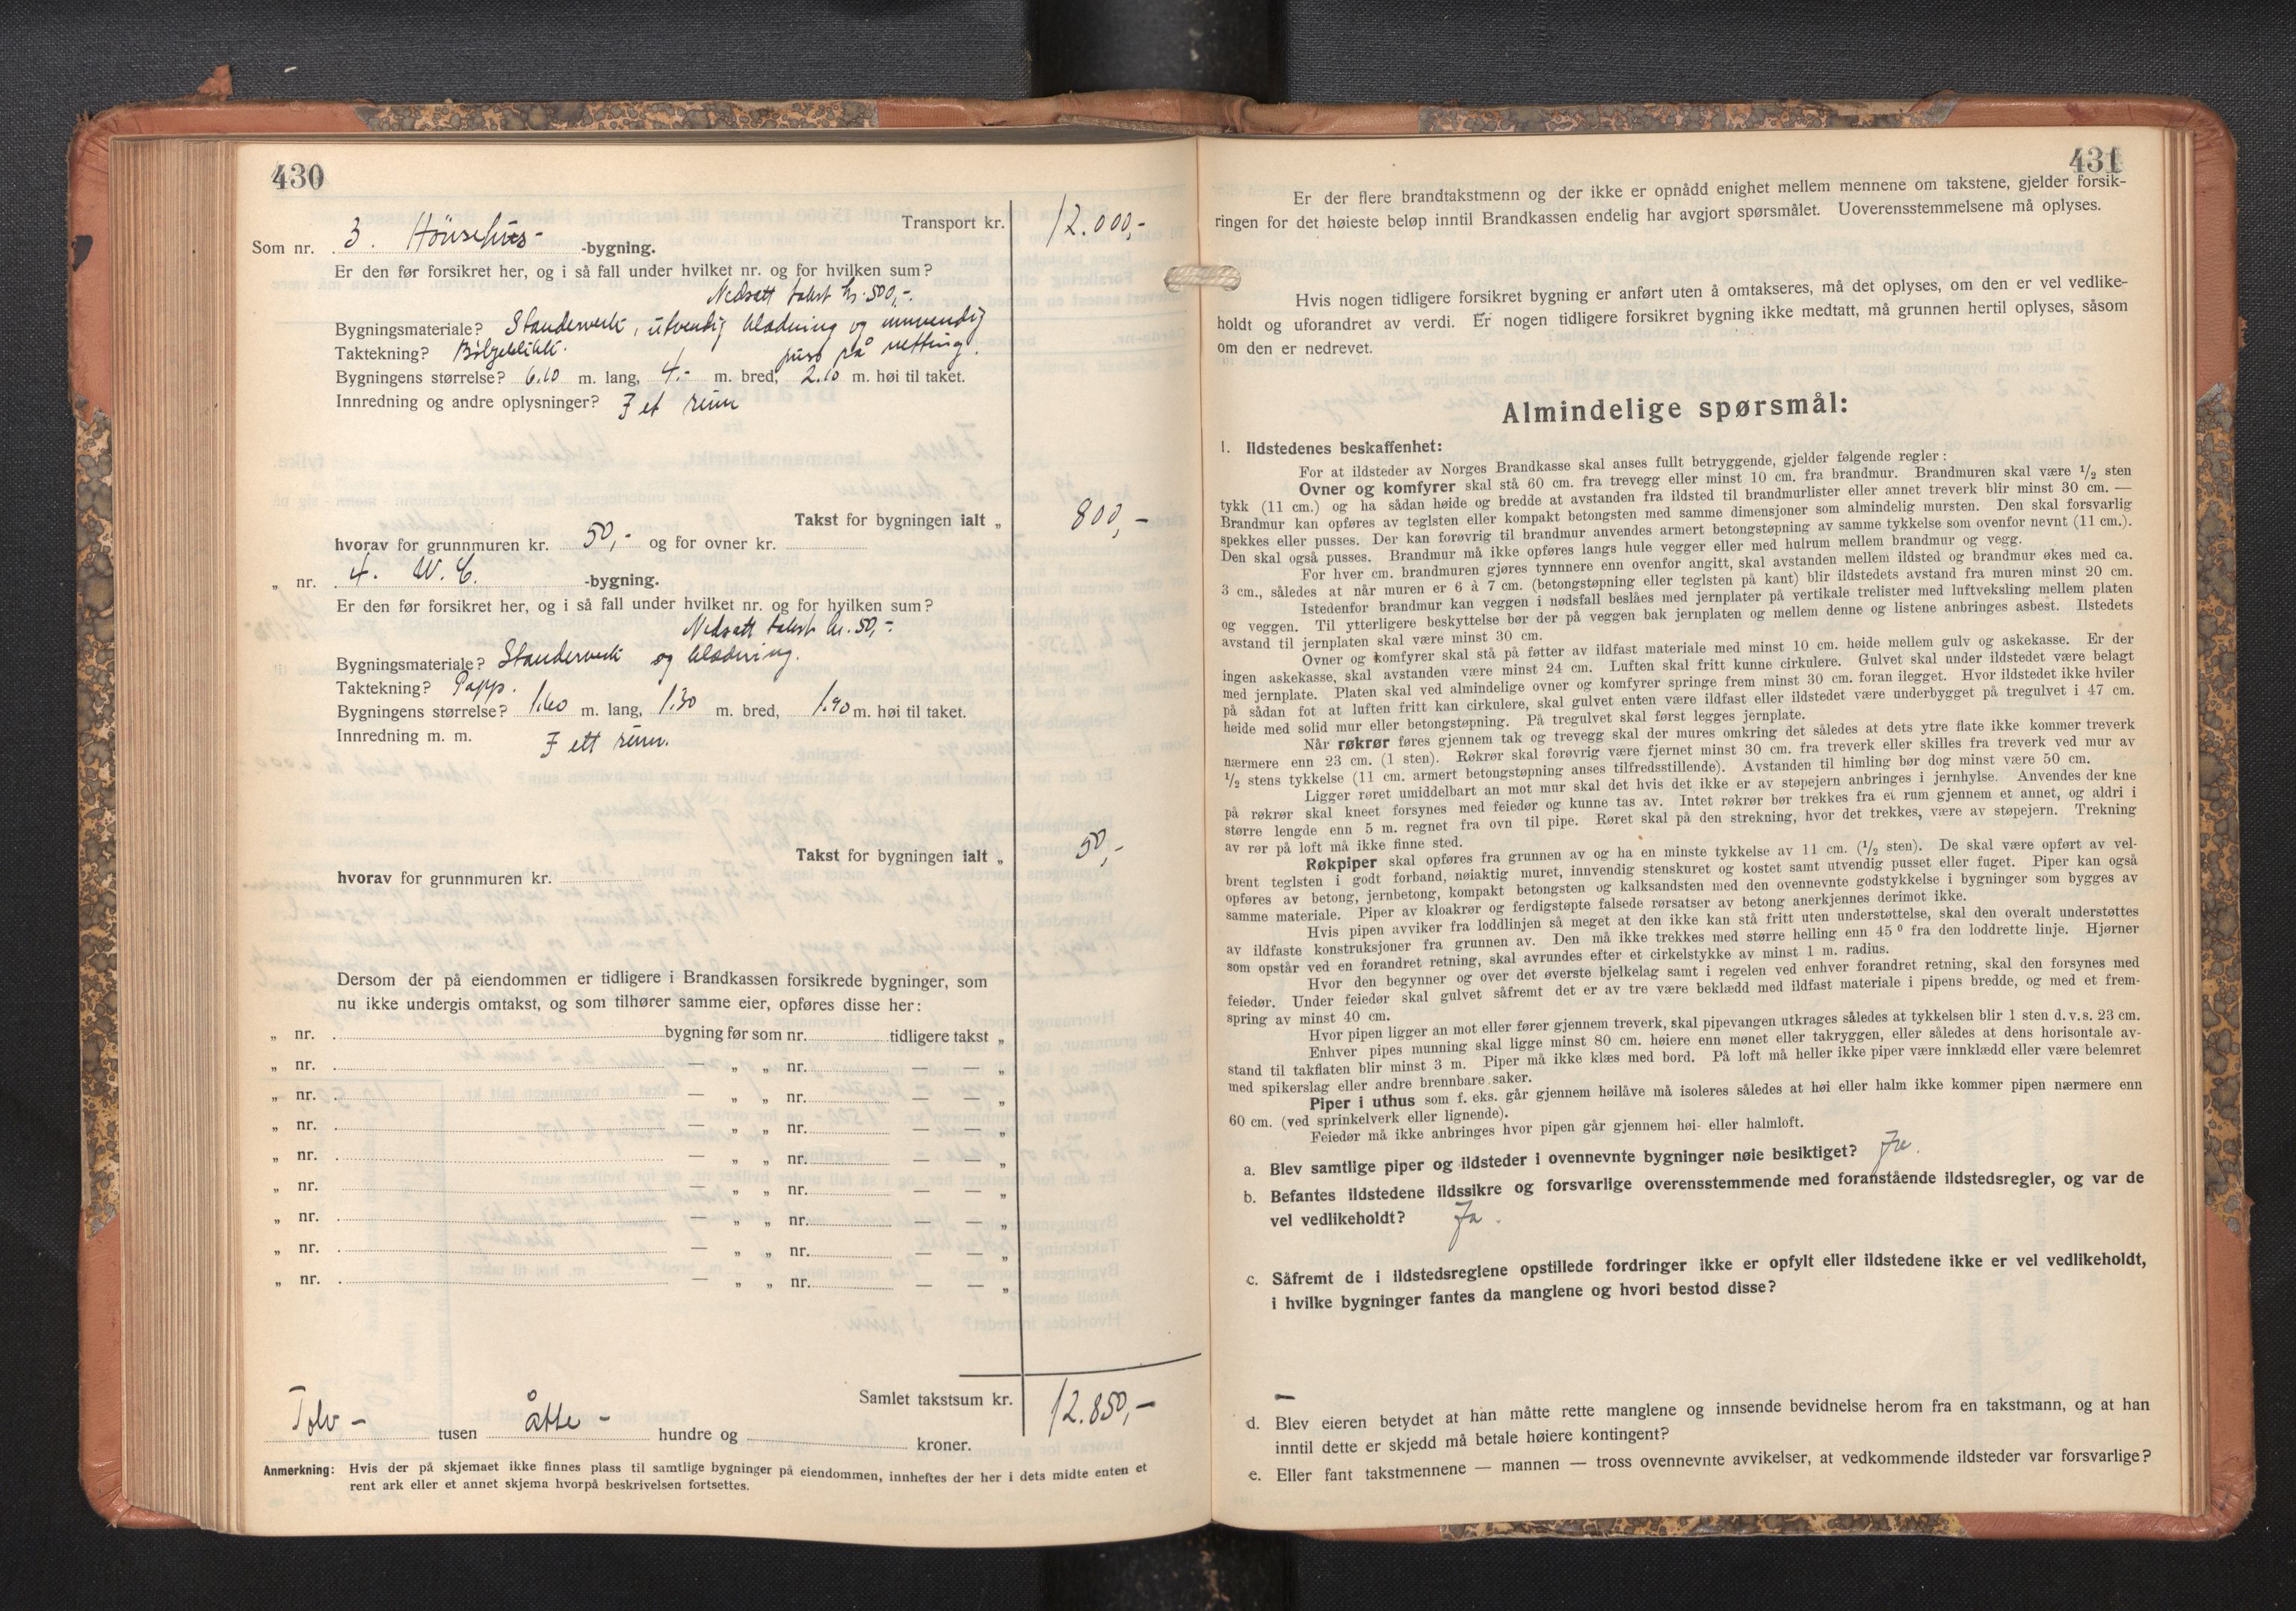 430
Transport kr. 12.000,-
Som nr. 3. Hönsehus- -bygning.
Er den før forsikret her, og i så fall under hvilket nr. og for hvilken sum?
Nedsatt takst kr. 500,-.
Bygningsmateriale? Standerverk, utvendig klædning og innvendig
Taktekning? Bölgeblikk. puss på netting.
Bygningens størrelse? 6.10 m. lang, 4.- m. bred, 2.10 m. høi til taket.
Innredning og andre oplysninger? I et rum
Takst for bygningen ialt „ 800,-
hvorav for grunnmuren kr. 50,- og for ovner kr.
„ nr. 4. W.C. -bygning.
Er den før forsikret her, og i så fall under hvilket nr. og for hvilken sum?
Nedsatt takst kr. 50,-.
Bygningsmateriale? Standerverk og klædning.
Taktekning? Papp.
Bygningens størrelse? 1.60 m. lang, 1.30 m. bred, 1.90 m. høi til taket.
Innredning m. m. I ett rum.
Takst for bygningen ialt „ 50,-
hvorav for grunnmuren kr.
Dersom der på eiendommen er tidligere i Brandkassen forsikrede bygninger, som
nu ikke undergis omtakst, og som tilhører samme eier, opføres disse her:
„ nr. bygning før som nr. tidligere takst „
„ nr. — „ „ nr. — — „
„ nr. — „ „ nr. — — „
„ nr. — „ „ nr. — — „
„ nr. — „ „ nr. — — „
„ nr. — „ „ nr. — — „
„ nr. — „ „ nr. — — „
„ nr. — „ „ nr. — — „
„ nr. — „ „ nr. — — „
Samlet takstsum kr. 12.850,-
Tolv - tusen åtte - hundre og kroner.
Anmerkning: Hvis der på skjemaet ikke finnes plass til samtlige bygninger på eiendommen, innheftes der her i dets midte enten et
rent ark eller et annet skjema hvorpå beskrivelsen fortsettes.
431
Er der flere brandtakstmenn og der ikke er opnådd enighet mellem mennene om takstene, gjelder forsik-
ringen for det høieste beløp inntil Brandkassen endelig har avgjort spørsmålet. Uoverensstemmelsene må oplyses.
Hvis nogen tidligere forsikret bygning er anført uten å omtakseres, må det oplyses, om den er vel vedlike-
holdt og uforandret av verdi. Er nogen tidligere forsikret bygning ikke medtatt, må grunnen hertil oplyses, såsom
om den er nedrevet.
Almindelige spørsmål:
1. Ildstedenes beskaffenhet:
For at ildsteder av Norges Brandkasse skal anses fullt betryggende, gjelder følgende regler:
Ovner og komfyrer skal stå 60 cm. fra trevegg eller minst 10 cm. fra brandmur. Brandmuren skal være 1/2 sten
tykk (11 cm.) og ha sådan høide og bredde at avstanden fra ildsted til brandmurlister eller annet treverk blir minst 30 cm. —
Brandmur kan opføres av teglsten eller kompakt betongsten med samme dimensjoner som almindelig mursten. Den skal forsvarlig
spekkes eller pusses. Der kan forøvrig til brandmur anvendes armert betongstøpning av samme tykkelse som ovenfor nevnt (11 cm.).
Den skal også pusses. Brandmur må ikke opføres langs hule vegger eller med hulrum mellem brandmur og vegg.
For hver cm. brandmuren gjøres tynnnere enn ovenfor angitt, skal avstanden mellem ildsted og brandmur økes med ca.
3 cm., således at når muren er 6 à 7 cm. (betongstøpning eller teglsten på kant) blir ildstedets avstand fra muren minst 20 cm.
Istedenfor brandmur kan veggen i nødsfall beslåes med jernplater på vertikale trelister med luftveksling mellem platen
og veggen. Til ytterligere beskyttelse bør der på veggen bak jernplaten og mellem denne og listene anbringes asbest. Ilstedets
avstand til jernplaten skal være minst 30 cm.
Ovner og komfyrer skal stå på føtter av ildfast materiale med minst 10 cm. høide mellem gulv og askekasse. Er der
ingen askekasse, skal avstanden være minst 24 cm. Luften skal fritt kunne cirkulere. Gulvet skal under ildstedet være belagt
med jernplate. Platen skal ved almindelige ovner og komfyrer springe frem minst 30 cm. foran ilegget. Hvor ildstedet ikke hviler
på sådan fot at luften fritt kan cirkulere, skal gulvet enten være ildfast eller ildstedet være underbygget på tregulvet i 47 cm.
høide med solid mur eller betongstøpning. På tregulvet skal først legges jernplate.
Når røkrør føres gjennem tak og trevegg skal der mures omkring det således at dets ytre flate ikke kommer treverk
nærmere enn 23 cm. (1 sten). Røkrør skal forøvrig være fjernet minst 30 cm. fra treverk eller skilles fra treverk ved mur av
1/2 stens tykkelse (11 cm. armert betongstøpning anses tilfredsstillende). Avstanden til himling bør dog minst være 50 cm.
Ligger røret umiddelbart an mot mur skal det hvis det ikke er av støpejern anbringes i jernhylse. Anvendes der kne
på røkrør skal kneet forsynes med feiedør og kunne tas av. Intet røkrør bør trekkes fra et rum gjennem et annet, og aldri i
større lengde enn 5 m. regnet fra ovn til pipe. Røret skal på den strekning, hvor det trekkes, være av støpejern. Trekning
av rør på loft må ikke finne sted.
Røkpiper skal opføres fra grunnen av og ha en minste tykkelse av 11 cm. (1/2 sten). De skal være opført av vel-
brent teglsten i godt forband, nøiaktig muret, innvendig stenskuret og kostet samt utvendig pusset eller fuget. Piper kan også
opføres av betong, jernbetong, kompakt betongsten og kalksandsten med den ovennevnte godstykkelse i bygninger som bygges av
samme materiale. Piper av kloakrør og ferdigstøpte falsede rørsatser av betong anerkjennes derimot ikke.
Hvis pipen avviker fra loddlinjen så meget at den ikke kan stå fritt uten understøttelse, skal den overalt understøttes
av ildfaste konstruksjoner fra grunnen av. Den må ikke trekkes med større helling enn 45⁰ fra den loddrette linje. Hjørner
som opstår ved en forandret retning, skal avrundes efter et cirkelstykke av minst 1 m. radius.
Hvor den begynner og over det øverste bjelkelag samt i regelen ved enhver forandret retning, skal den forsynes med
feiedør. Under feiedør skal gulvet såfremt det er av tre være beklædd med ildfast materiale i pipens bredde, og med et frem-
spring av minst 40 cm.
Hvor pipen ligger an mot eller fører gjennem treverk, skal pipevangen utkrages således at tykkelsen blir 1 sten d.v.s. 23 cm.
Enhver pipes munning skal ligge minst 80 cm. høiere enn mønet eller takryggen, eller således at dens horisontale av-
stand til takflaten blir minst 3 m. Piper må ikke klæs med bord. På loft må heller ikke piper være innklædd eller være belemret
med spikerslag eller andre brennbare saker.
Piper i uthus som f. eks. går gjennem heilåve må isoleres således at høi eller halm ikke kommer pipen nærmere enn
60 cm. (ved sprinkelverk eller lignende).
Feiedør må ikke anbringes hvor pipen går gjennem høi- eller halmloft.
a. Blev samtlige piper og ildsteder i ovennevnte bygninger nøie besiktiget? Ja.
b. Befantes ildstedene ildssikre og forsvarlige overensstemmende med foranstående ildstedsregler, og var de
vel vedlikeholdt? Ja.
c. Såfremt de i ildstedsreglene opstillede fordringer ikke er opfylt eller ildstedene ikke er vel vedlikeholdt,
i hvilke bygninger fantes da manglene og hvori bestod disse?
—
d. Blev eieren betydet at han måtte rette manglene og innsende bevidnelse herom fra en takstmann, og at han
inntil dette er skjedd må betale høiere kontingent?
e. Eller fant takstmennene — mannen — tross ovennevnte avvikelser, at vedkommende ildsteder var forsvarlige?